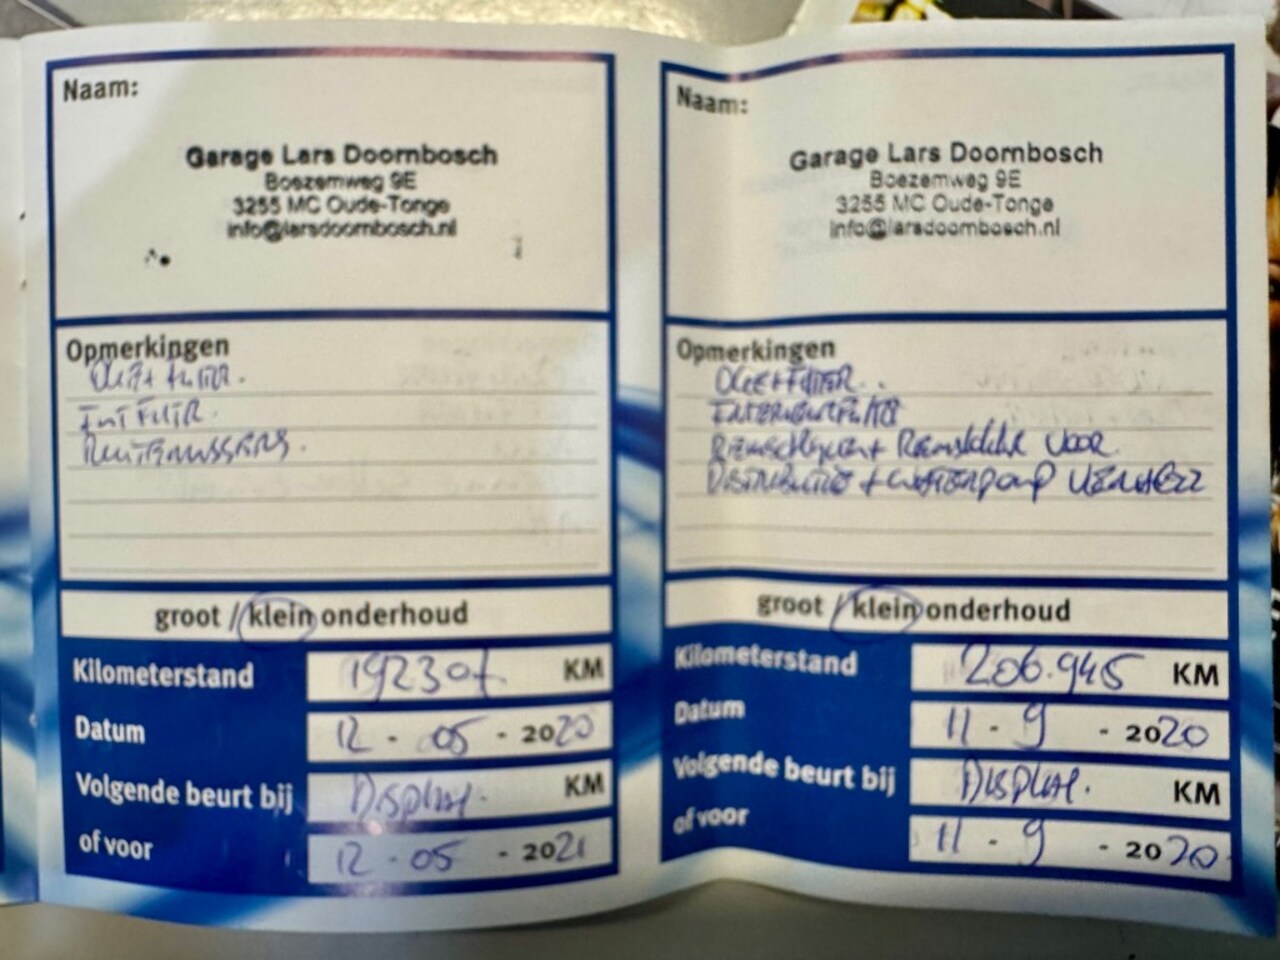 Naam:
Garage Lars Doornbosch
Boezemweg 9E
3255 MC Oude-Tonge
info@larsdoornbosch.nl
Opmerkingen
Olie + Filter.
Int Filtr.
Ruitenwissers.
groot / klein onderhoud
Kilometerstand 192307 KM
Datum 12 - 05 - 2020
Volgende beurt bij Display. KM
of voor 12 - 05 - 2021
Naam:
Garage Lars Doornbosch
Boezemweg 9E
3255 MC Oude-Tonge
info@larsdoornbosch.nl
Opmerkingen
Olie + Filter.
Interieurfilter
Remschijven + Remblokke voor.
Distributie + waterpomp
groot / klein onderhoud
Kilometerstand 206.945 KM
Datum 11 - 9 - 2020
Volgende beurt bij Display. KM
of voor 11 - 9 - 2020